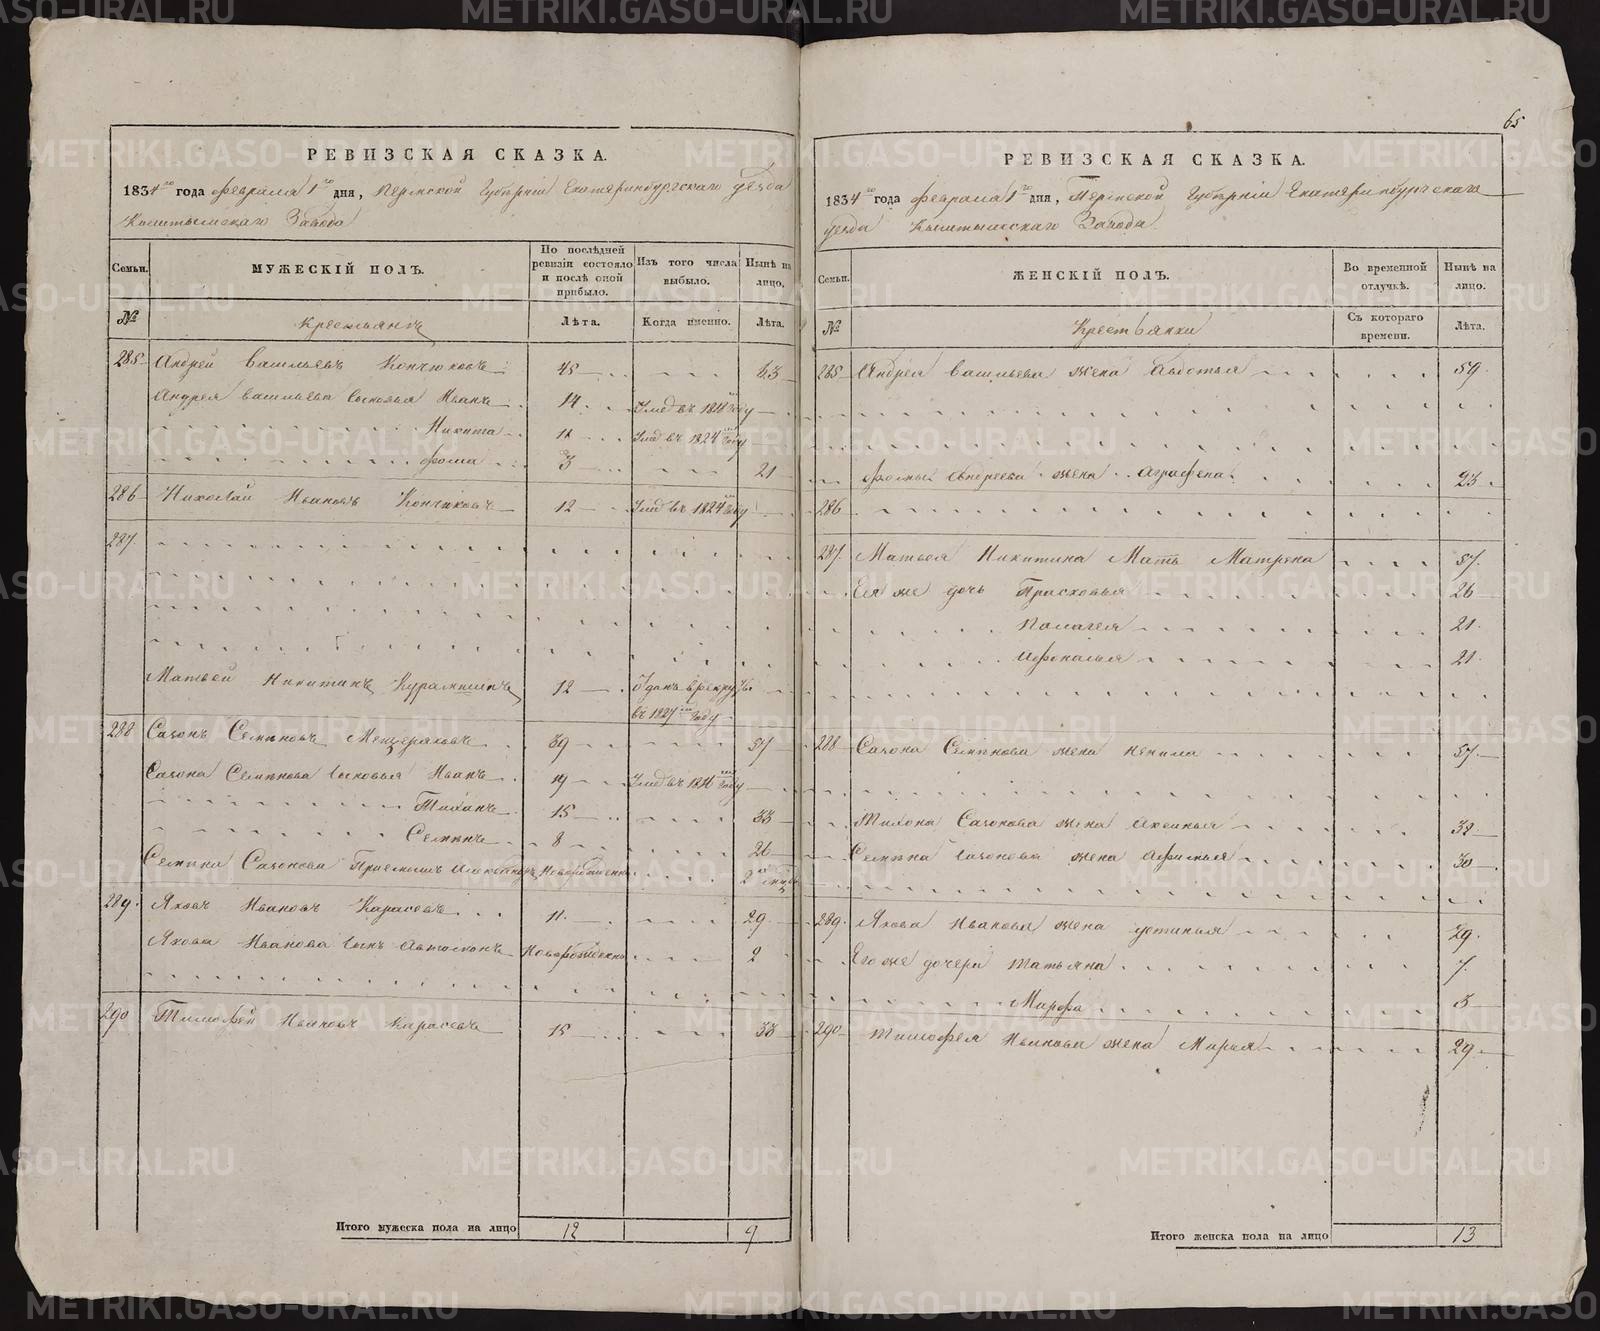 65
РЕВИЗСКАЯ СКАЗКА.
1834го года февраля 1го дня, Пермской Губерніи Екатеринбургскаго уезда
Кыштымскаго Завода
Семьи. МУЖЕСКІЙ ПОЛЪ. По послѣдней ревизіи состояло и послѣ оной прибыло. Изъ того числа выбыло. Нынѣ на лицо.
№ Крестьянъ Лѣта. Когда именно. Лѣта.
285 Андрей Васильевъ 45 63
Андрея Васильева сыновья Иванъ 14 Умеръ въ году
Никита 11 Умеръ въ 1824 году
Фома 3 21
286 Николай Ивановъ 12 Умеръ въ 1824 году
287.
Матвей Никитинъ 12 Отданъ в рекруты
въ 1827 году
288 Сазонъ Семеновъ Мещеряковъ 39 57
Сазона Семенова сыновья Иванъ 19 Умеръ въ году
Тихонъ 15 33
Семенъ 8 26
Семена Сазонова
289. Яковъ Ивановъ Карасевъ 11. 29
Якова Иванова сынъ Новорожденъ 2
290 Тимофей Ивановъ Карасевъ 15 33
Итого мужеска пола на лицо 12 9
РЕВИЗСКАЯ СКАЗКА.
1834го года февраля 1го дня, Пермской Губерніи Екатеринбургскаго
уезда Кыштымскаго Завода.
Семьи. ЖЕНСКІЙ ПОЛЪ. Во временной отлучкѣ. Нынѣ на лицо.
№ Крестьянки Съ котораго времени. Лѣта.
285 Андрея Васильева жена Авдотья 59.
Фомы Андреева жена Аграфена 23.
286
287. Матвея Никитина Мать Матрена 57.
Ея же дочь Прасковья 26
Палагея 21.
Афеналья 21.
288 Сазона Семенова жена Ненила 57.
Тихона Сазонова жена Аксинья 32.
Семена Сазонова жена Афимья 30
289. Якова Иванова жена Устинья 29.
Его же дочери Татьяна 7.
Марфа 3
290 Тимофея Иванова жена Марья 29.
Итого женска пола на лицо 13
METRIKI.GASO-URAL.RU